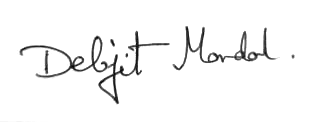 Debjit Mondal.